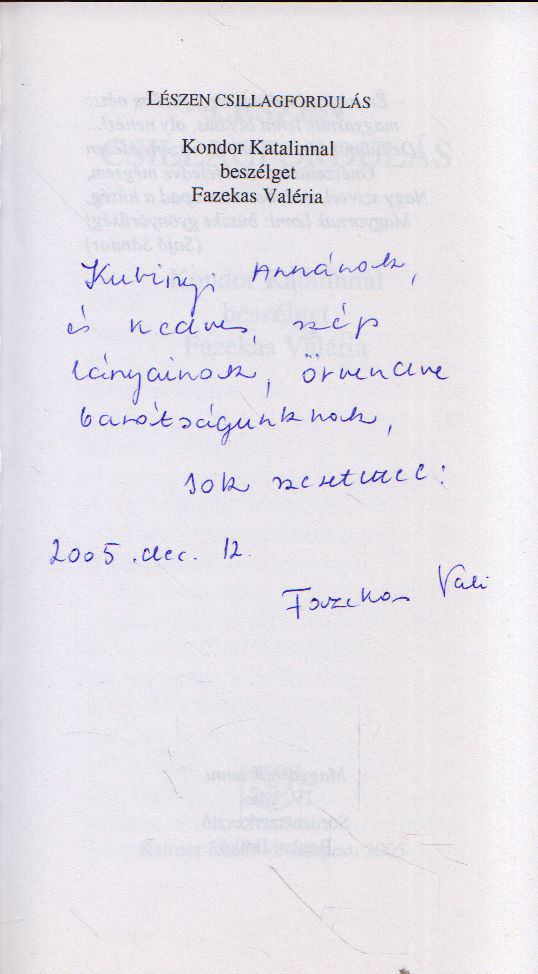 LÉSZEN CSILLAGFORDULÁS
Kondor Katalinnal
beszélget
Fazekas Valéria
Kubinyi Annának,
és kedves szép
lányainak, örvendve
barátságunknak,
sok szeretettel:
2005. dec. 12.
Fazekas Vali